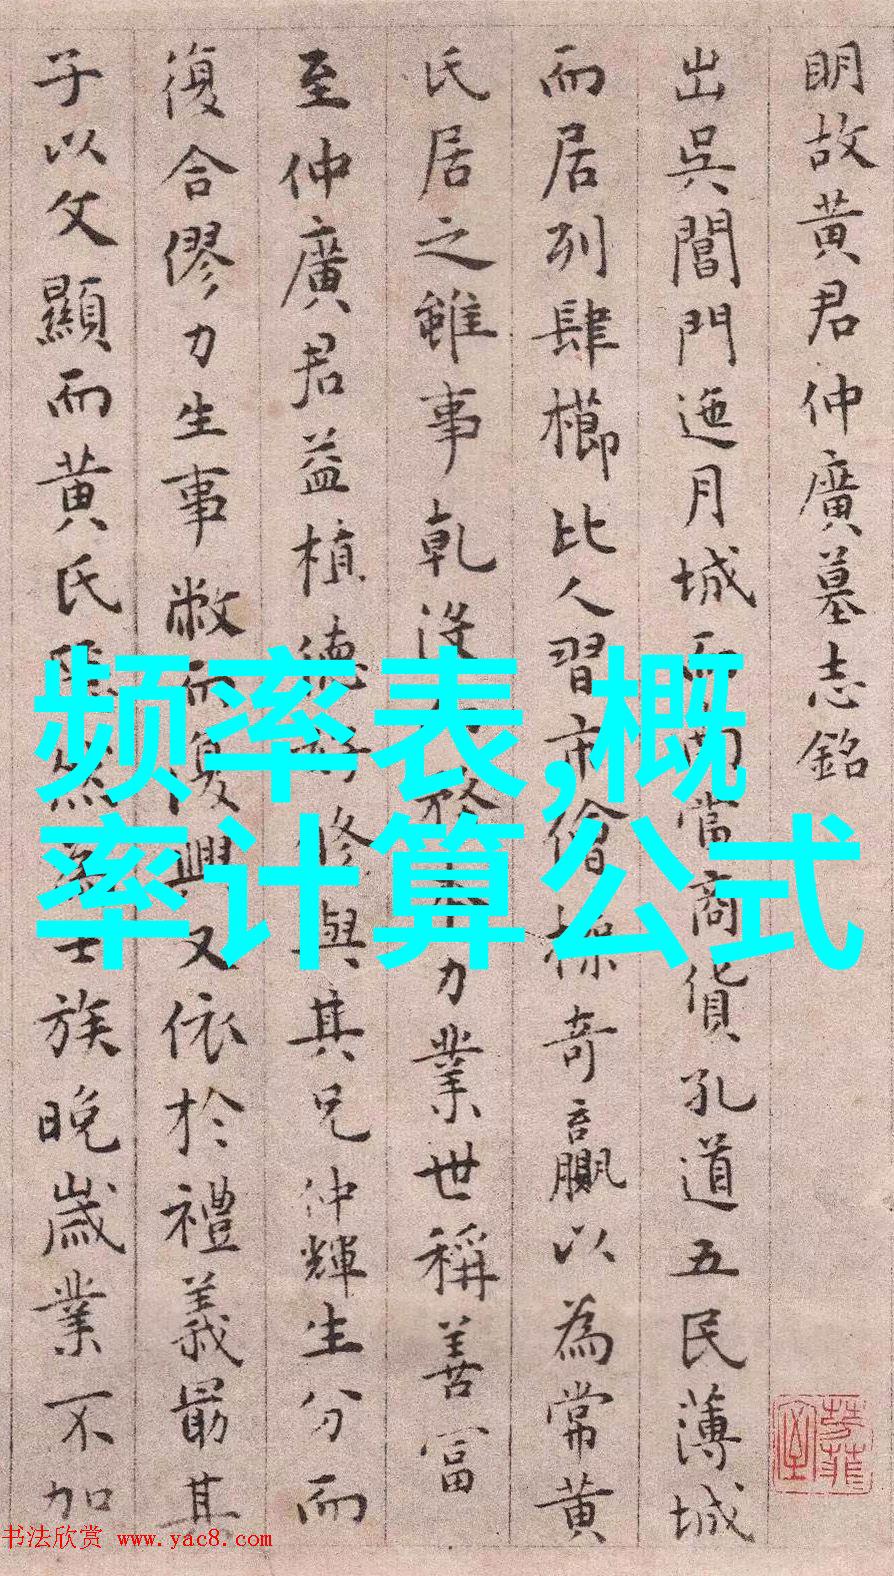 明故黃君仲廣墓志銘
出吳閶門迤月城而南當商貨孔道五民薄城
而居列肆櫛比人習市儈操奇贏以為常黃
氏居之雖事乾没 務本力業世稱善富
至仲廣君益植德好修與其兄仲輝生分而
復合僇力生事敝而復興又依於禮義最其
子以文顯而黃氏 然為士族晚歲業不加
频率表,概
率计算公式
书法欣赏 www.yac8.com